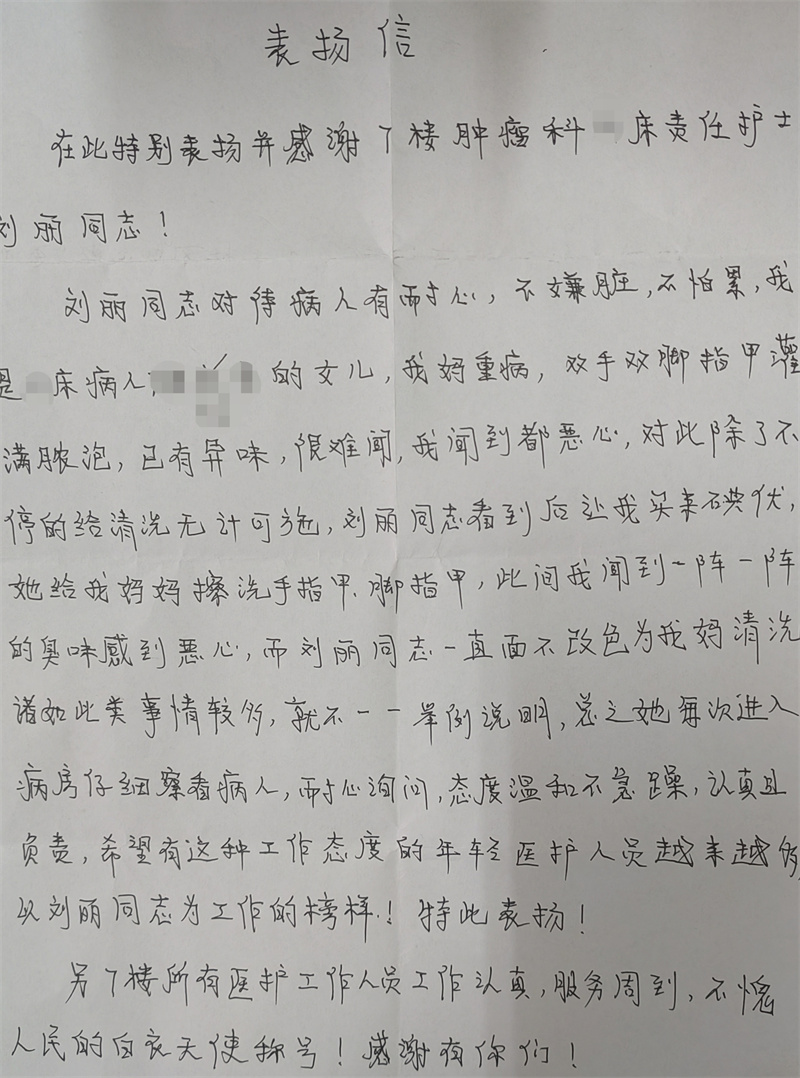 表扬信
在此特别表扬并感谢7楼肿瘤科 床责任护士
刘丽同志！
刘丽同志对待病人有耐心，不嫌脏，不怕累，我
是 床病人 的女儿，我妈重病，双手双脚指甲灌
满脓泡，已有异味，很难闻，我闻到都恶心，对此除了不
停的给清洗无计可施，刘丽同志看到后让我买来碘伏，
她给我妈妈擦洗手指甲、脚指甲，此间我闻到一阵一阵
的臭味感到恶心，而刘丽同志一直面不改色为我妈清洗
诸如此类事情较多，就不一一举例说明，总之她每次进入
病房仔细察看病人，耐心询问，态度温和不急躁，认真且
负责，希望有这种工作态度的年轻医护人员越来越多
以刘丽同志为工作的榜样！特此表扬！
另7楼所有医护工作人员工作认真，服务周到，不愧
人民的白衣天使称号！感谢有你们！